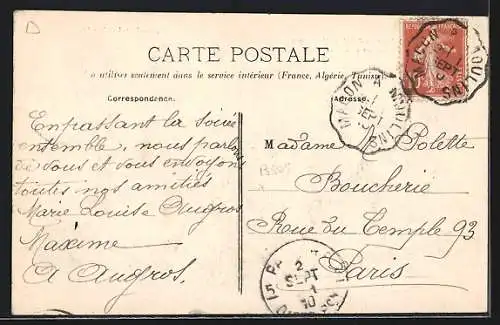 D
CARTE POSTALE
à utiliser seulement dans le service intérieur (France, Algérie, Tunisie)
Correspondance.
Adresse.
MACON A MOULINS
Enpassant la soirée
ensemble, nous parlons
de vous et vous envoyons
toutes nos amitiés
Marie Louise Augros
Maxime
A Augros.
Madame Polette
Boucherie
Rue du Temple 93
Paris
2
SEPT
10